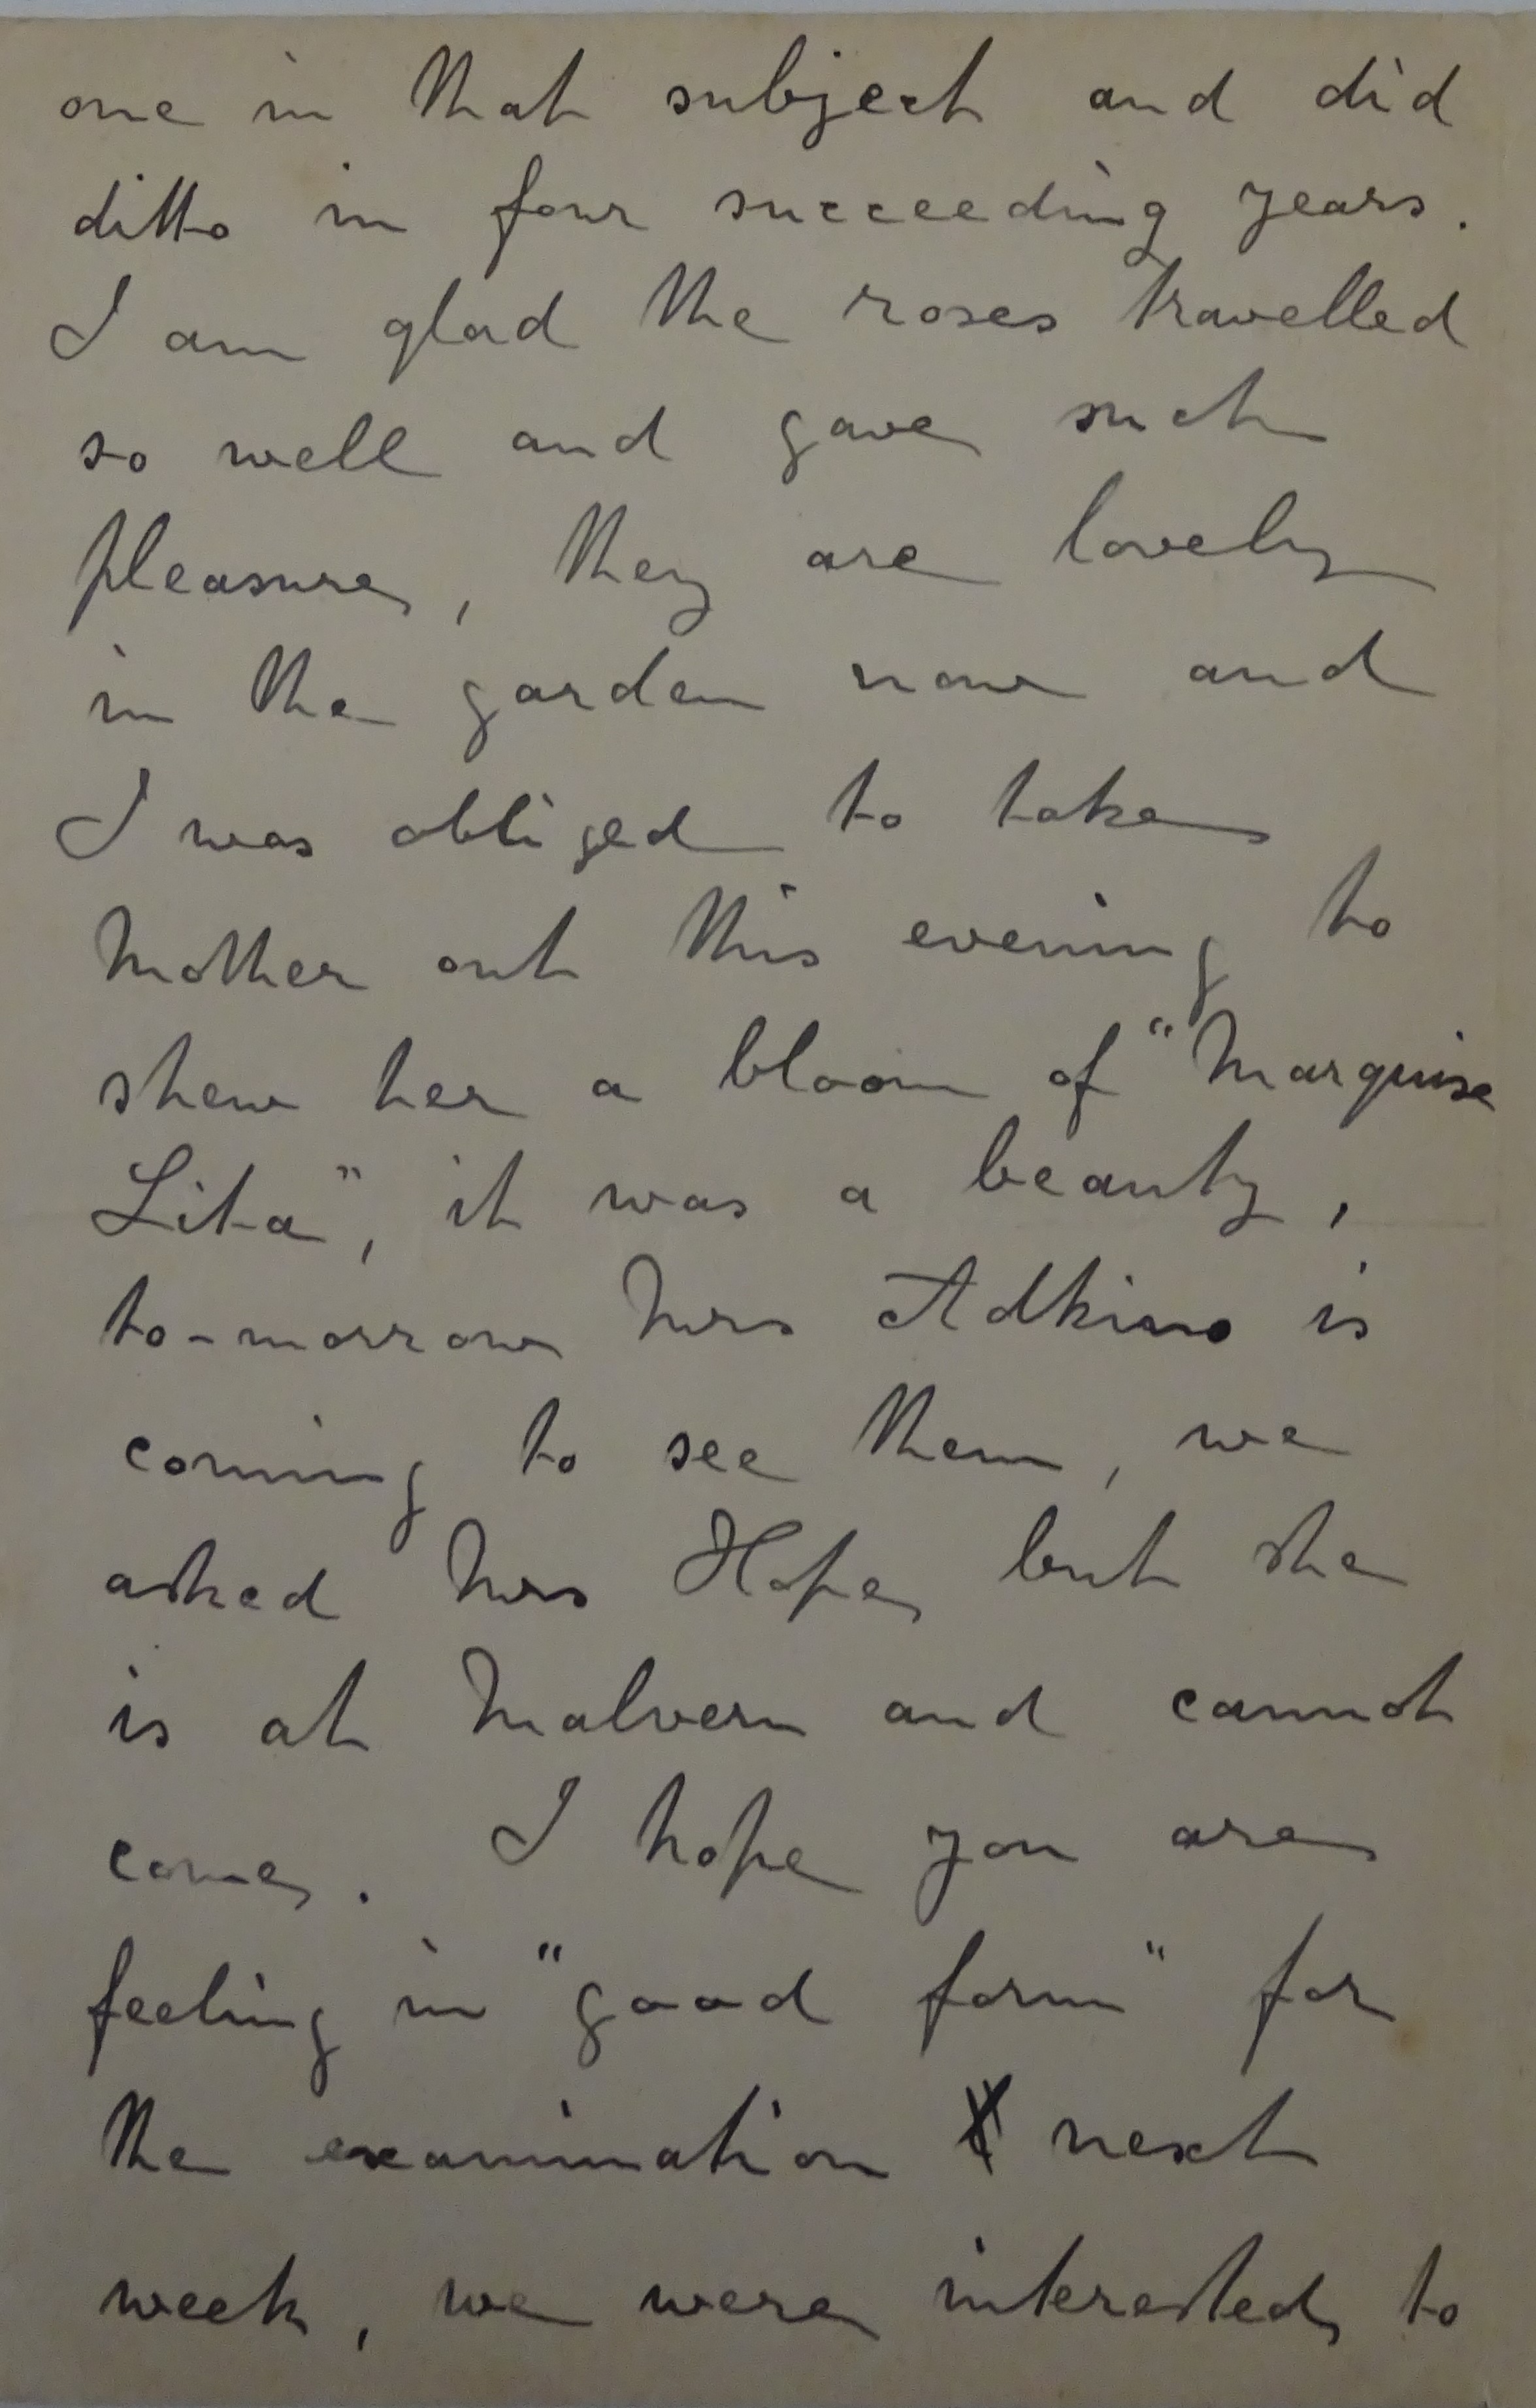 one in that subject and did
ditto in four succeeding years.
I am glad the roses travelled
so well and gave such
pleasure, they are lovely
in the garden now and
I was obliged to take
Mother out this evening to
shew her a bloom of "Marquise
Lita", it was a beauty,
to-morrow Mrs Adkins is
coming to see them, we
asked Mrs Hope, but she
is at Malvern and cannot
come. I hope you are
feeling in "good form" for
the examination next
week, we were interested to